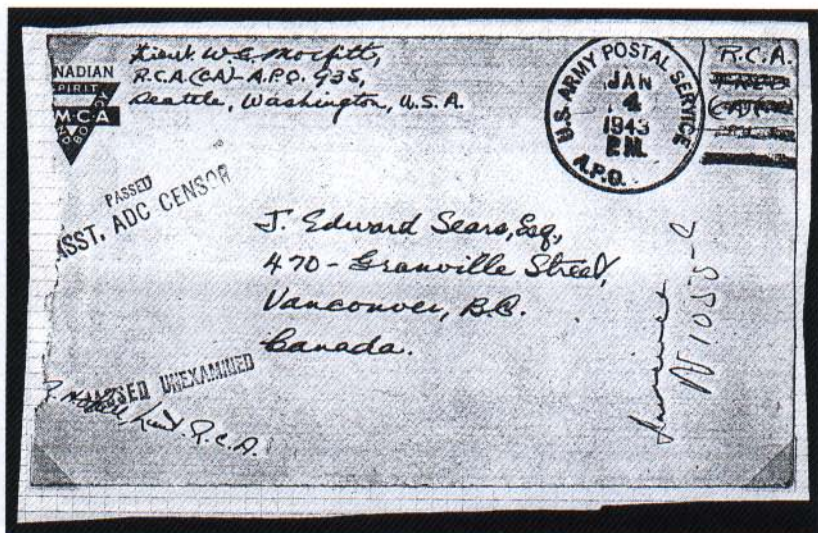 NADIAN
SPIRIT
M·C·A
Lieut. W.C.
R.C.A.(CA)- A.P.O. 935,
Seattle, Washington, U.S.A.
U.S. ARMY POSTAL SERVICE
JAN
4
1943
P.M.
A.P.O.
R.C.A.
PASSED
ASST. ADC CENSOR
J. Edward Sears, Esq,
470 - Granville Street,
Vancouver, B.C.
Canada.
PASSED UNEXAMINED
Lieut. R.C.A.
N 1055-C